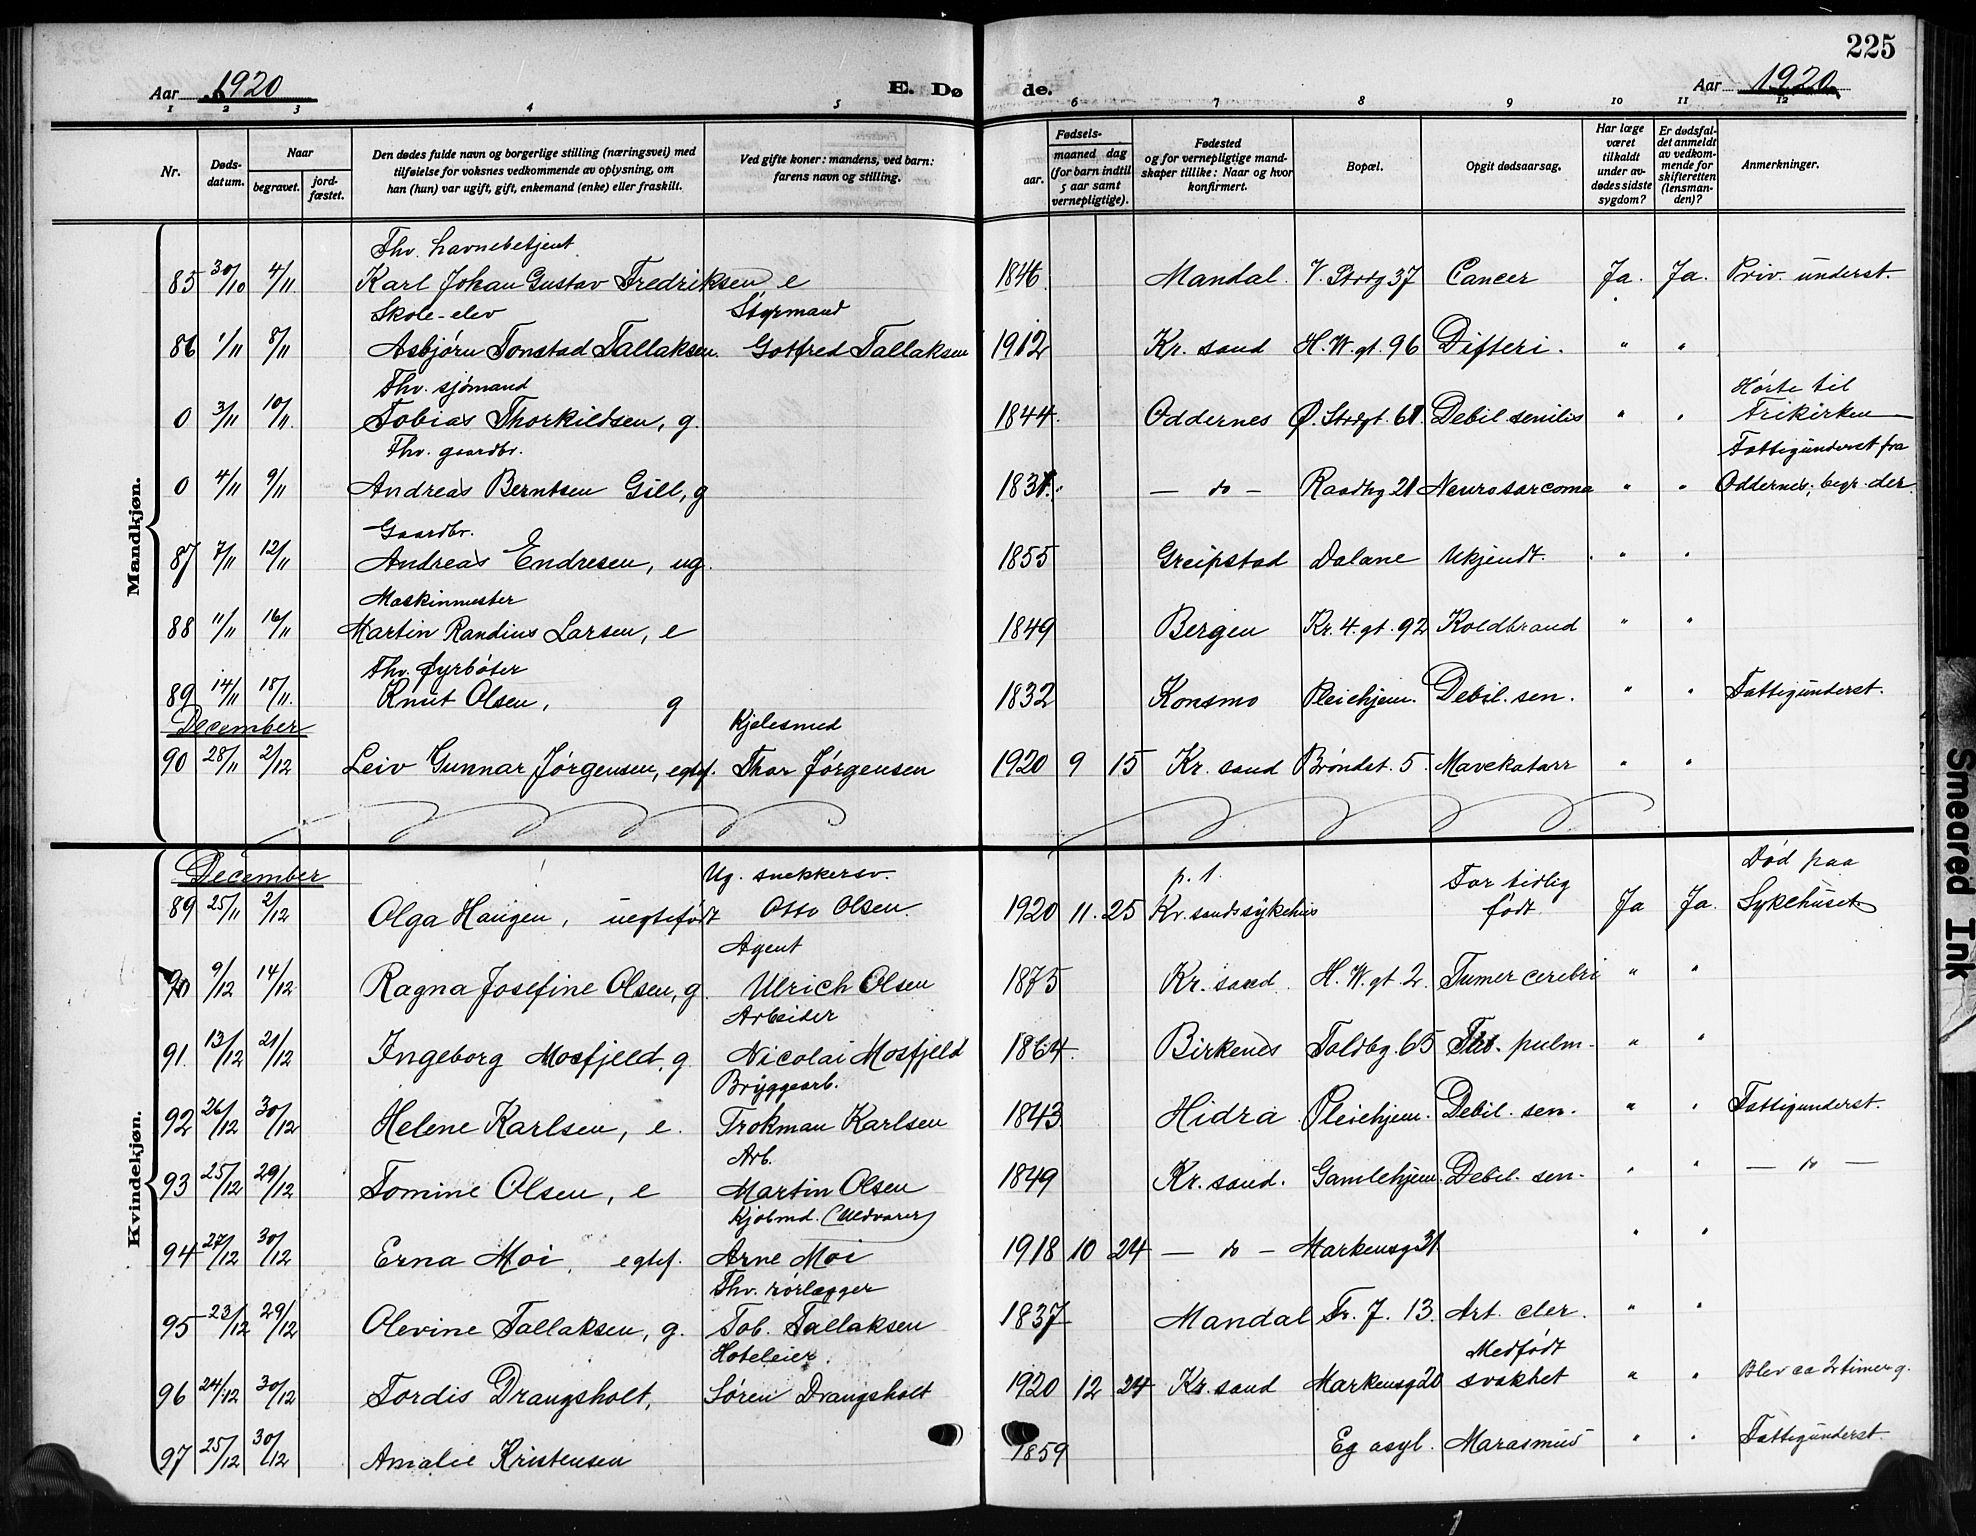 225
Aar 1920
E. Dø de.
Aar 1920
1 2 3 4 5 6 7 8 9 10 11 12
Nr.
Døds-datum.
Naar
begravet.
jord-fæstet.
Den dødes fulde navn og borgerlige stilling (næringsvei) med
tilføielse for voksnes vedkommende av oplysning, om
han (hun) var ugift, gift, enkemand (enke) eller fraskilt.
Ved gifte koner: mandens, ved barn:
farens navn og stilling.
Fødsels-
aar.
maaned dag
(for barn indtil
5 aar samt
vernepligtige).
Fødested
og for vernepligtige mand-
skaper tillike: Naar og hvor
konfirmert.
Bopæl.
Opgit dødsaarsag.
Har læge
været
tilkaldt
under av-
dødes sidste
sygdom?
Er dødsfal-
det anmeldt
av vedkom-
mende for
skifteretten
(lensman-
den)?
Anmerkninger.
Mandkjøn.
Fhv. havnebetjent
85 30/10 4/11 Karl Johan Gustav Fredriksen e 1846 Mandal. V. Strdg 37 Cancer Ja. Ja. Priv. underst.
Skole-elev Styrmand
86 1/11 8/11 Asbjørn Tonstad Tallaksen. Gotfred Tallaksen 1912 Kr. sand H. W. gt. 96 Difteri. " "
Fhv. sjömand Hörte til
0 3/11 10/11 Tobias Thorkildsen, g. 1844. Oddernes Ø. Strdgt. 61 Debil senilis " " Frikirken
Fhv. gaardbr. Fattigunderst fra
0 4/11 9/11 Andreas Berntsen Gill, g — do — Raadhg 21 Neurosarcoma " " Oddernes, begr. der.
Gaardbr.
87 7/11 12/11 Andreas Endresen, ug. 1855 Greipstad Dalane Ukjendt. " "
Maskinmester
88 11/11 16/11 Martin Randius Larsen, e 1849 Bergen Kr. 4. gt. 92 Koldbrand " "
Fhv. fyrböter
89 14/11 18/11 Knut Olsen, g 1832 Konsmo Pleiehjem. Debil. sen. " " Fattigunderst.
December Kjelesmed
90 28/11 2/12 Leiv Gunnar Jörgensen, egtef. Thor Jörgensen 1920 9 15 Kr. sand Bröndst. 5. Mavekatarr " "
Kvindekjøn.
December Ug. snekkersv. p. t. For tidlig Död paa
89 25/11 2/12 Olga Haugen, uegtefödt Otto Olsen. 1920 11. 25 Kr. sands sykehus födt Ja Ja. Sykehuset
Agent
90 9/12 14/12 Ragna Josefine Olsen, g. Ulrich Olsen 1875 Kr. sand. H. W. gt. 2. Tumor cerebri " "
Arbeider
91. 13/12 21/12 Ingeborg Mosfjeld, g Nicolai Mosfjeld 1864. Birkenes Toldbg. 65 Tub. pulm. " "
Bryggearb.
92 26/12 30/12 Helene Karlsen, e. Trokman Karlsen 1843 Hidra Pleiehjem. Debil. sen. " " Fattigunderst.
Arb.
93 25/12 29/12 Tomine Olsen, e Martin Olsen 1849 Kr. sand. Gamlehjem. Debil. sen. " " — do —
Kjöbmd. (Uldvarer)
94 27/12 30/12 Erna Moi, egtef. Arne Moi 1918 10 24 — do — Markensg 31 " "
Fhv. rörlægger
95 23/12 29/12 Olevine Tallaksen, g. Tob. Tallaksen 1837 Mandal Fr. J. 13. Art. cler. " "
Hoteleier. Medfödt
96 24/12 30/12 Tordis Drangsholt, Sören Drangsholt 1920 12 24 Kr. sand Markensg 20 svakhet " " Blev ca 2 timer g.
97 25/12 30/12 Amalie Kristensen 1859 Eg asyl. Marasmus " " Fattigunderst.
Smeared Ink